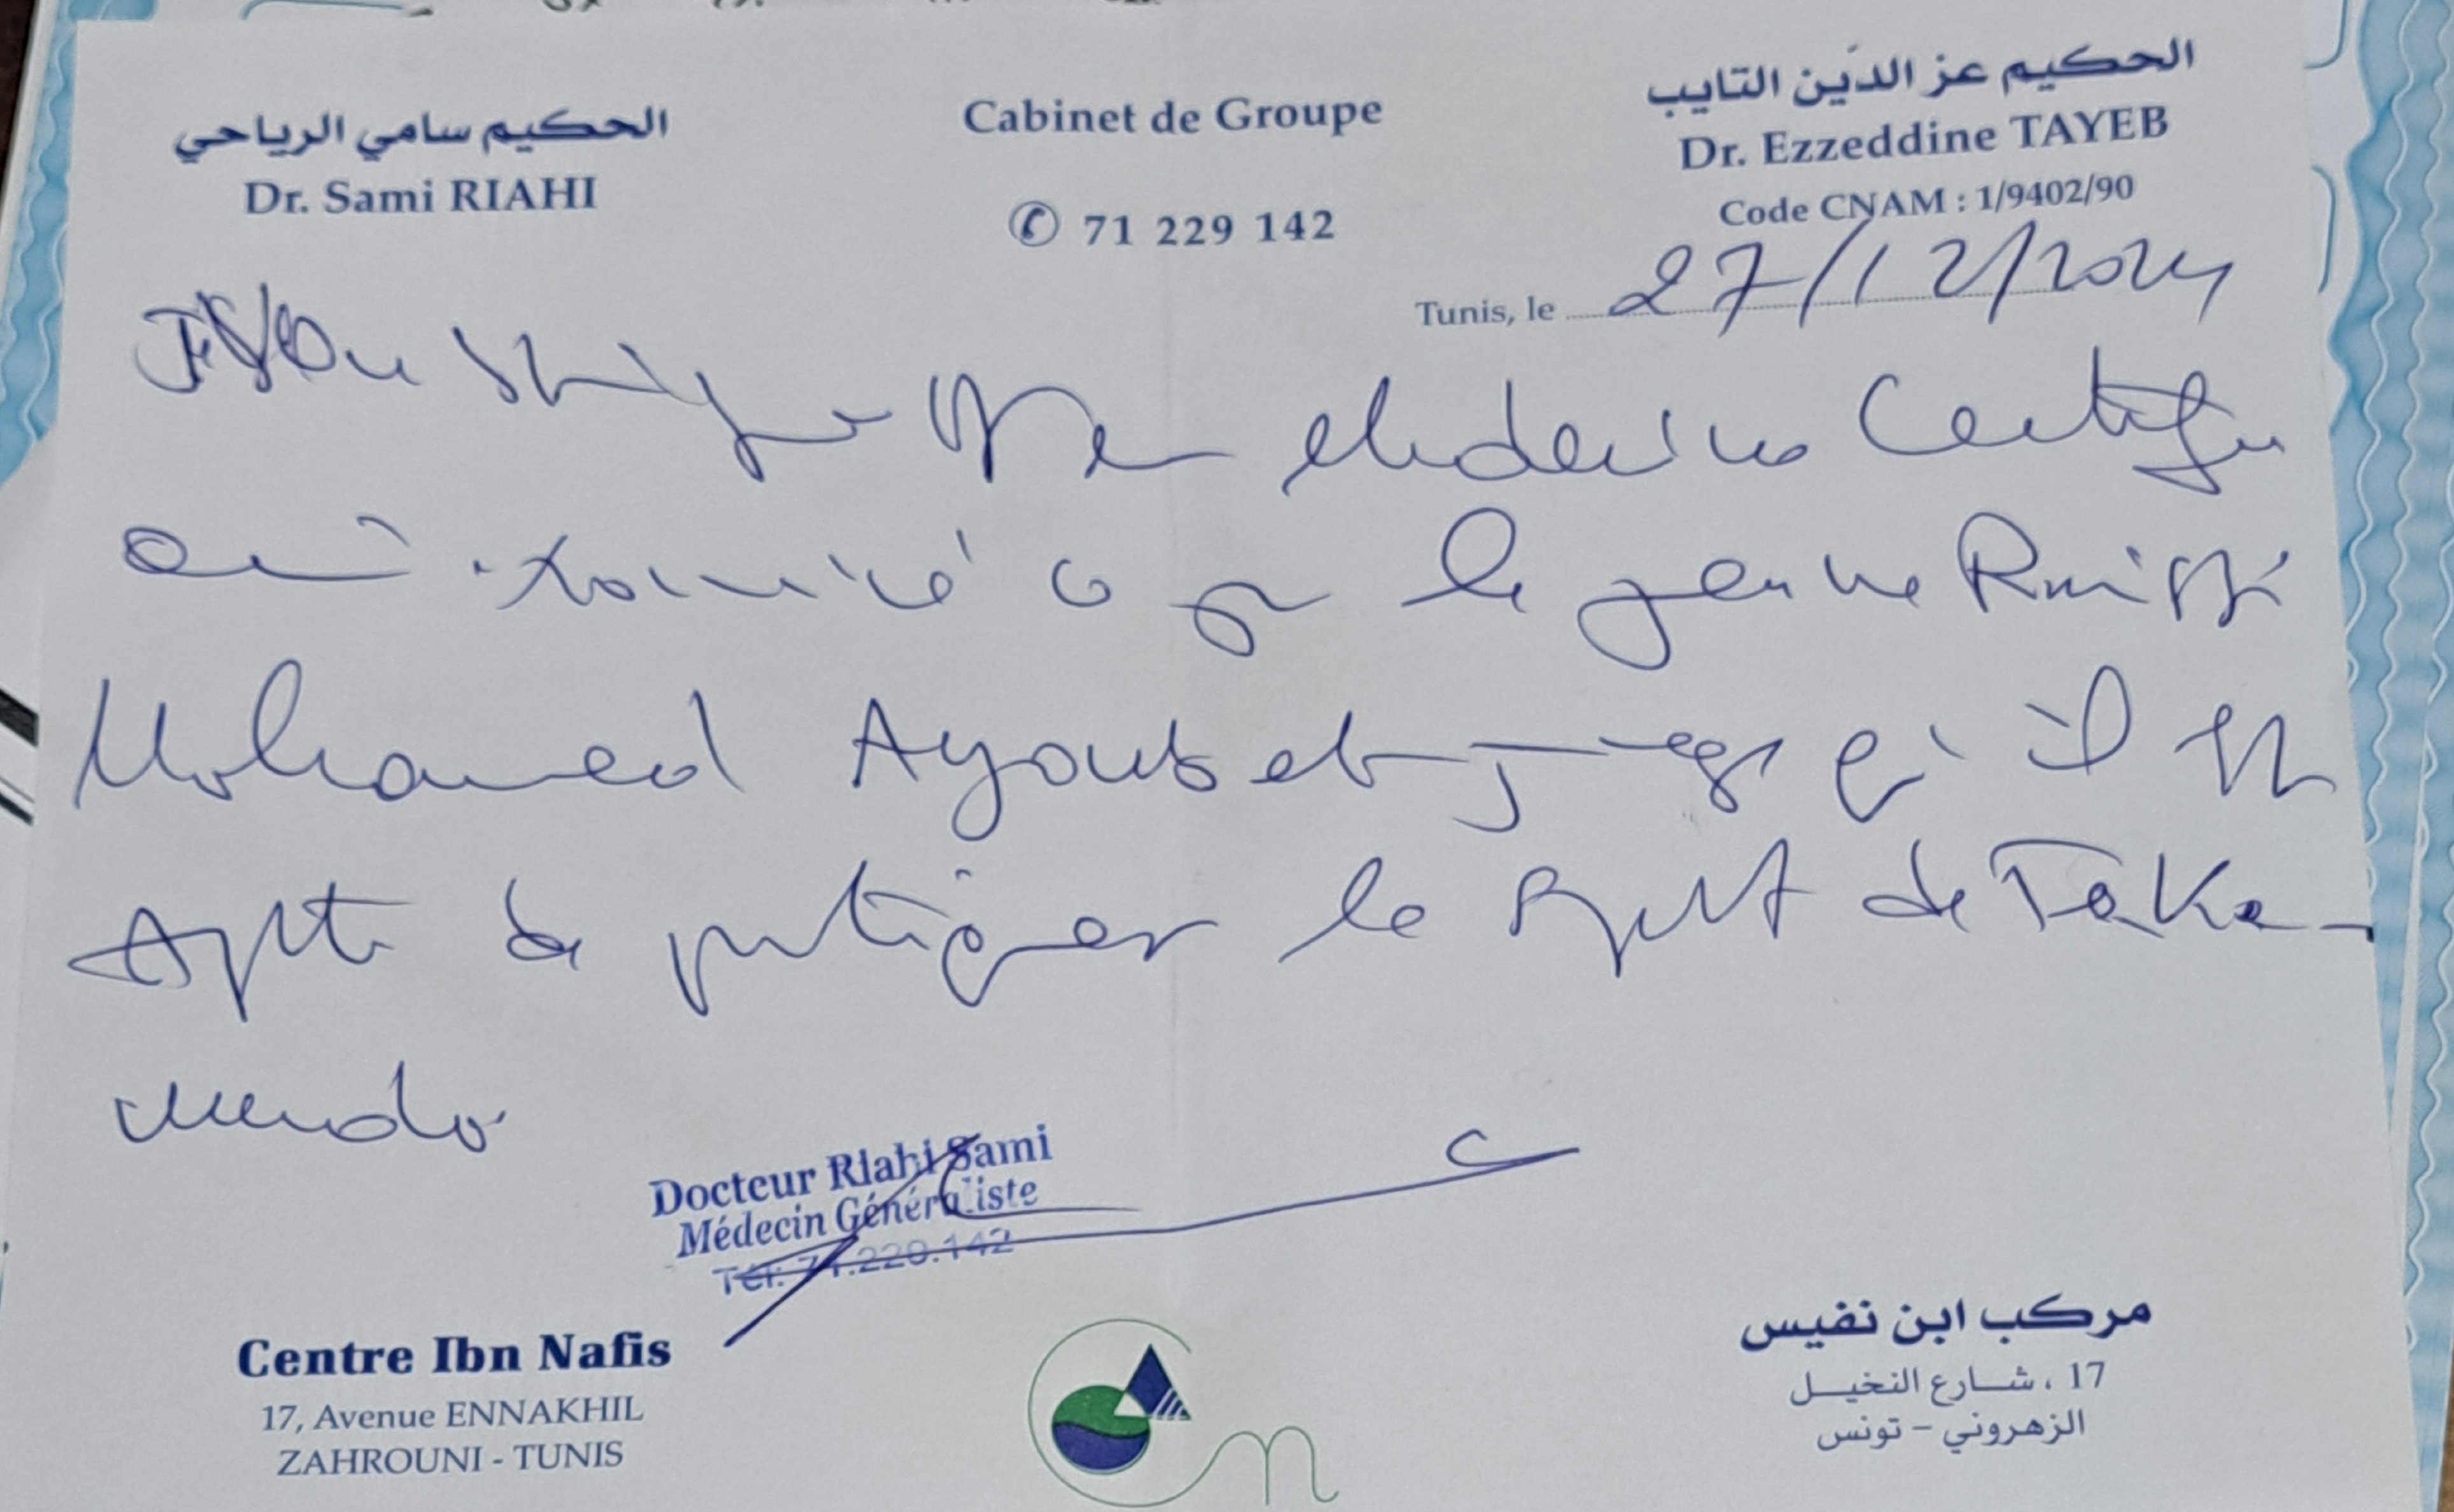 الحكيم سامي الرياحي
Dr. Sami RIAHI
Cabinet de Groupe
✆ 71 229 142
الحكيم عز الدّين التايب
Dr. Ezzeddine TAYEB
Code CNAM : 1/9402/90
Tunis, le 27/12/2024
Medecin Certifie
examiné ce jr le jeune
Mohamed Ayoub et juge qu'il est
Apte à pratiquer le sport de Taek-
wendo
Docteur Riahi Sami
Médecin Généraliste
Tél: 71.229.142
Centre Ibn Nafis
17, Avenue ENNAKHIL
ZAHROUNI - TUNIS
مركب ابن نفيس
17 ، شارع النخيل
الزهروني - تونس